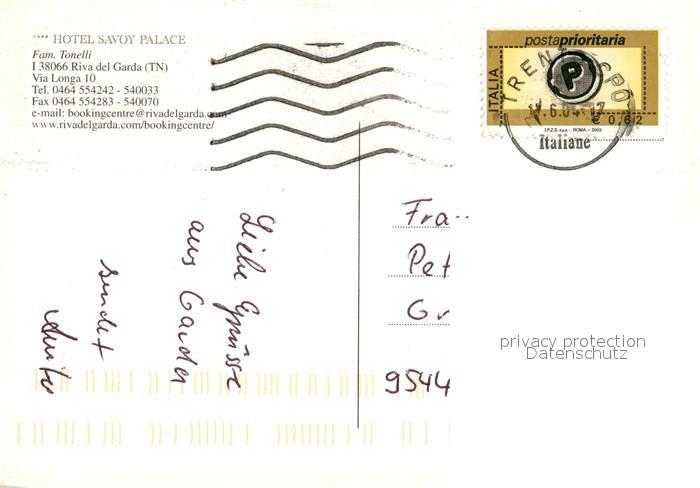 **** HOTEL SAVOY PALACE
Fam. Tonelli
I 38066 Riva del Garda (TN)
Via Longa 10
Tel. 0464 554242 - 540033
Fax 0464 554283 - 540070
e-mail: bookingcentre@rivadelgarda.com
www.rivadelgarda.com/bookingcentre/
postaprioritaria
ITALIA
P
I.P.Z.S. S.p.A. - ROMA - 2003
€ 0,62
TRENTO CPO
Italiane
Liebe Grüsse
aus Garda
sendet
Fra
Pet
Gr
9544
privacy protection
Datenschutz